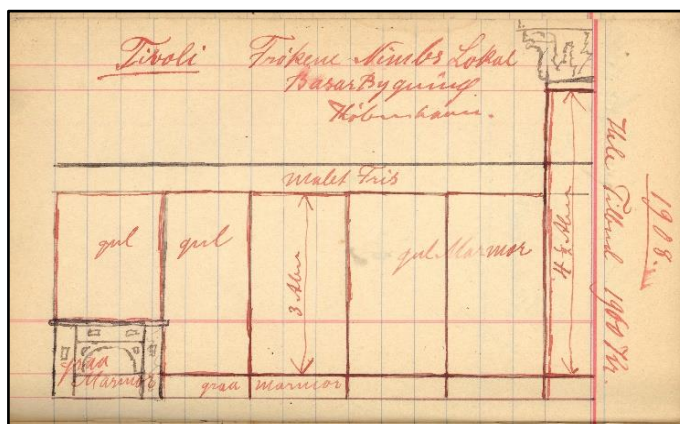 Tivoli Frøkene Nimbs Lokal
Basar Bygning
København.
malet Fris
gul
gul
3 Alen
gul Marmor
4½ Alen
graa
Marmor
graa marmor
1908.
Hele Tilbud 1960 Kr.